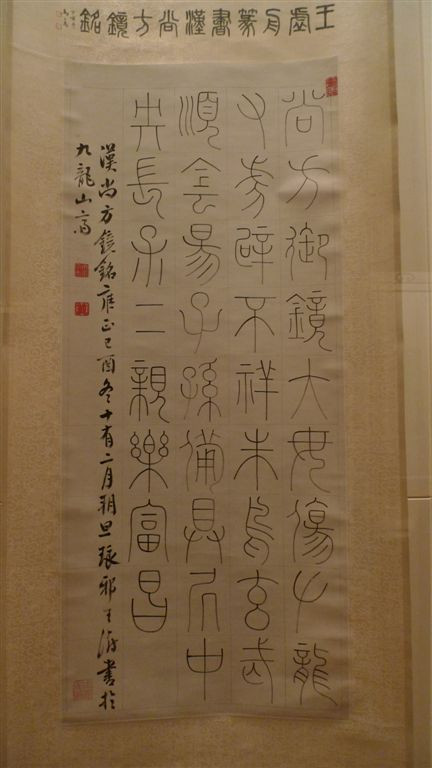 王虛舟篆書漢尚方鏡銘
尚方御鏡大毋傷左龍
右虎辟不祥朱鳥玄武
順陰陽子孫備具居中
央長保二親樂富昌
漢尚方鏡銘雍正己酉冬十有二月朔旦琅邪王澍書於
九龍山齋